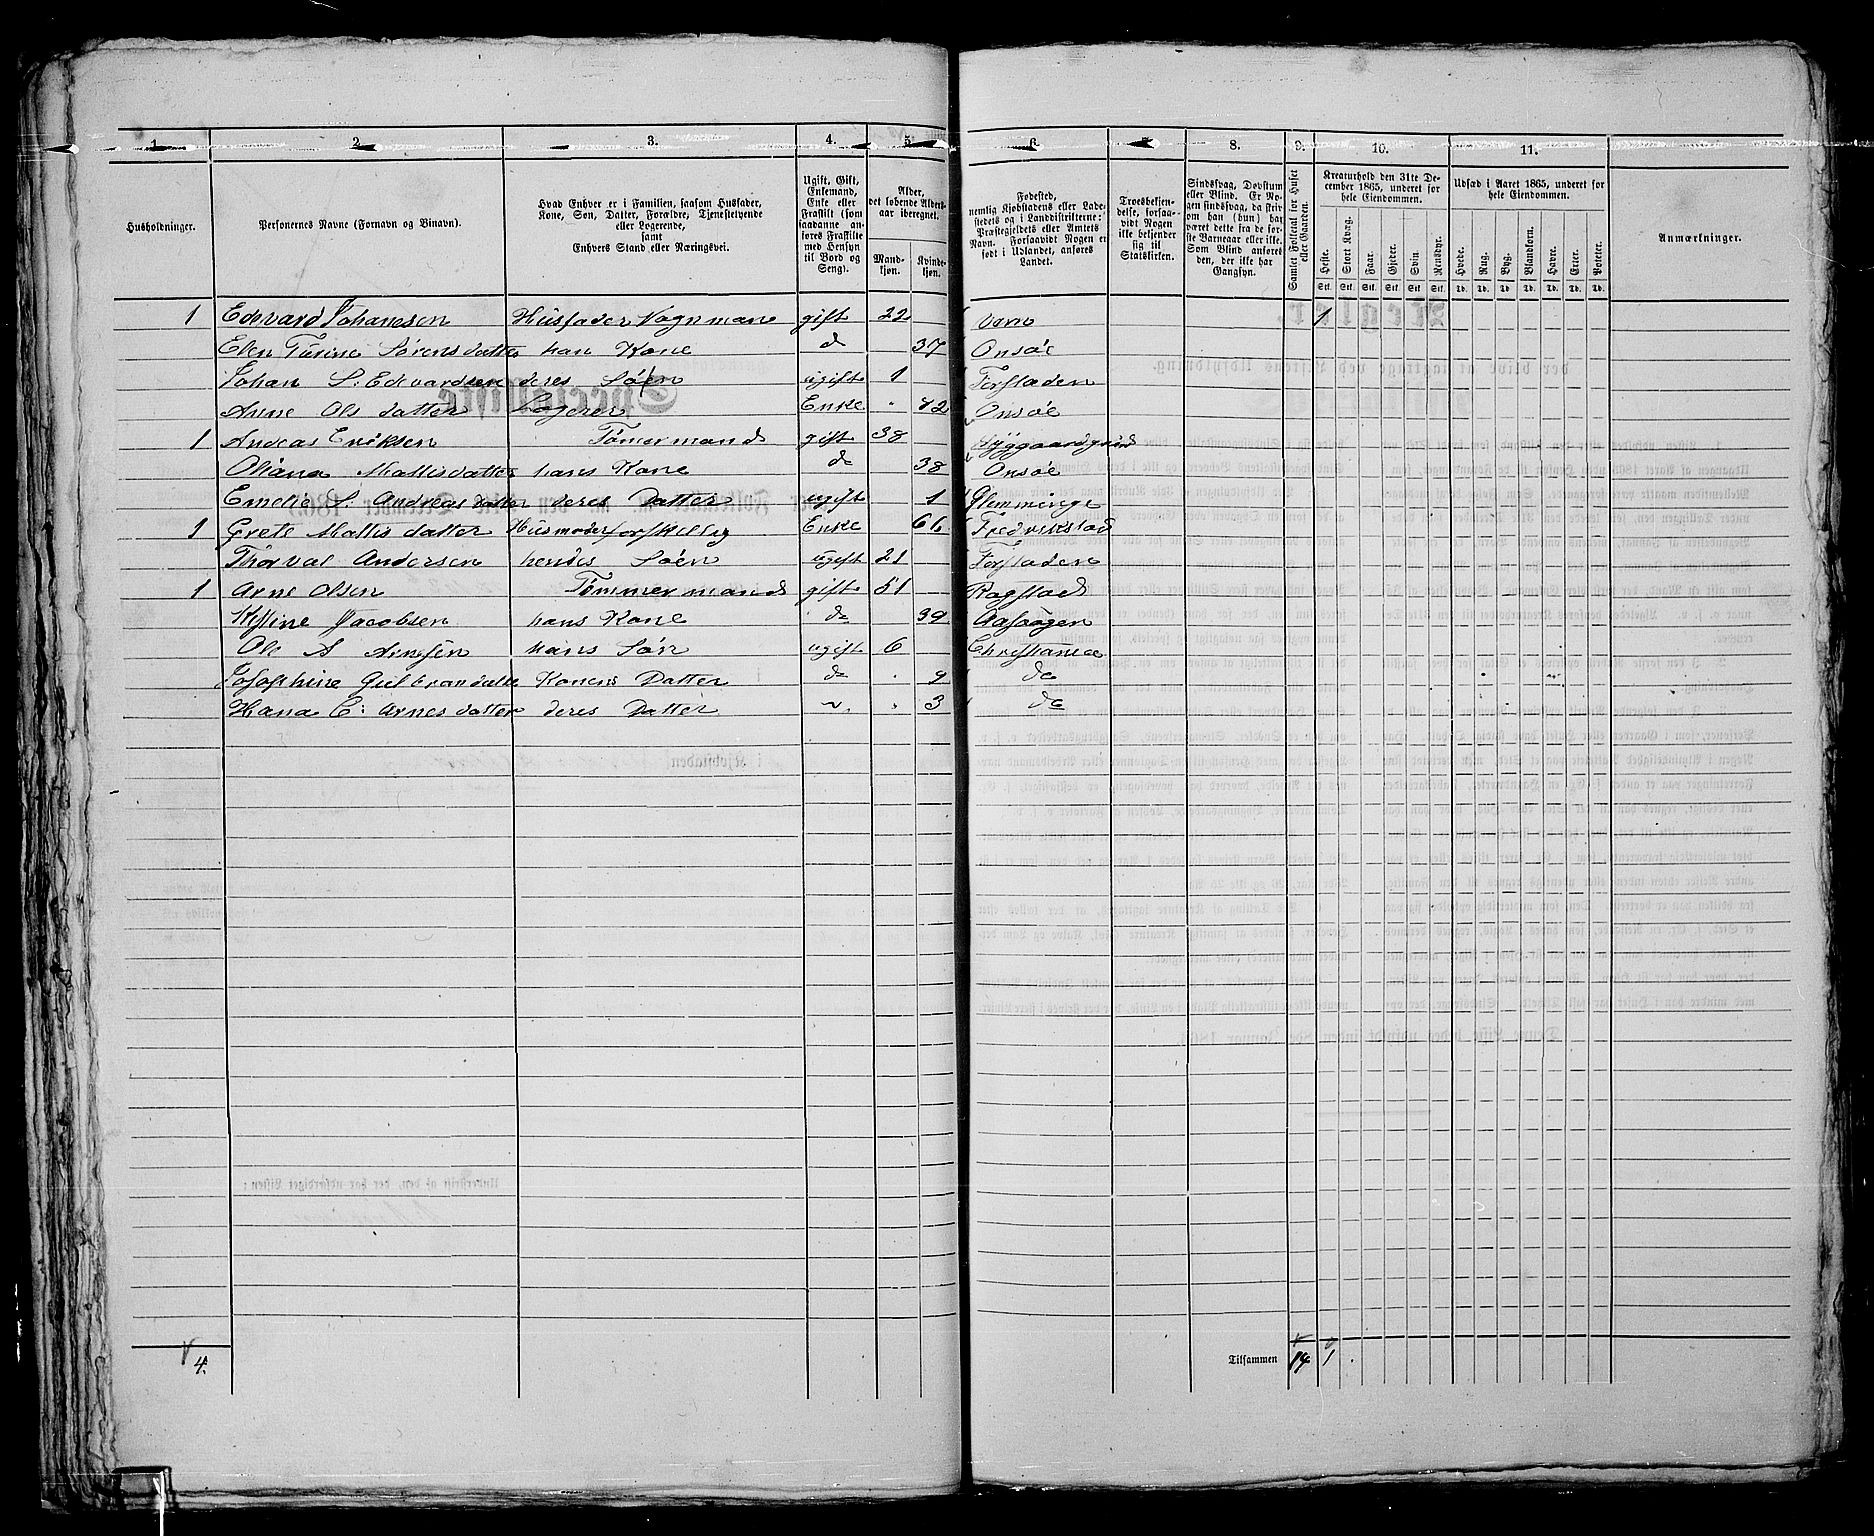 1. 2. 3. 4. 5. 6. 7. 8. 9. 10. 11.
Husholdninger.
Personernes Navne (Fornavn og Binavn).
Hvad Enhver er i Familien, saasom Husfader,
Kone, Søn, Datter, Forældre, Tjenestetyende
eller Logerende,
samt
Enhvers Stand eller Næringsvei.
Ugift, Gift,
Enkemand,
Enke eller
Fraskilt (som
saadanne an-
føres Fraskilte
med Hensyn
til Bord og
Seng).
Alder,
det løbende Alders-
aar iberegnet.
Mand-
kjøn.
Kvinde-
kjøn.
Fødested,
nemlig Kjøbstadens eller Lade-
stedets og i Landdistrikterne:
Præstegjeldets eller Amtets
Navn. Forsaavidt Nogen er
født i Udlandet, anføres
Landet.
Troesbekjen-
delse, forsaa-
vidt Nogen
ikke bekjender
sig til
Statskirken.
Sindssvag, Døvstum
eller Blind. Er No-
gen sindssvag, da skri-
ves, om han (hun) har
været dette fra de før-
ste Barneaar eller ikke.
Som Blind anføres
den, der ikke har
Gangsyn.
Samlet Folketal for Huset
eller Gaarden.
Kreaturhold den 31te De-
cember 1865, underet for
hele Eiendommen.
Heste. Stort Kvæg. Faar. Gjeder. Svin. Rensdyr.
Stk. Stk. Stk. Stk. Stk. Stk.
Udsæd i Aaret 1865, underet for
hele Eiendommen.
Hvede. Rug. Byg. Blandkorn. Havre. Erter. Poteter.
Td. Td. Td. Td. Td. Td. Td.
Anmærkninger.
1 Edevard Johansen Husfader Vognmane gift 22 1
Elen Turine Sørensdatter han Kone do 37 Onsøe
Johan S. Edevardsen deres Søen ugift 1 Forstaden
Anne Ols datter Logerer Enke " 82 Onsøe
1 Andeas Eriksen Tømermand gift 38
Oliana Mattisdatter hans Kone do 38 Onsøe
Emelie S. Andreasdatter deres Datter ugift 1 Glemminge
1 Grete Mattis datter Husmoder forskellig Enke 66 Fredrikstad
Thorval Andersen hendes Søen ugift 21 Forstaden
1 Arne Olsen Tømmermand gift 51 Rogstad
Kistine Jacobsen hans Kone do 39
Ole A Arnesen hans Søn ugift 6 Christiania
Josephine Gulbrandatte Konens Datter do " 9 do
Hana C: Arnesdatter deres Datter " " 3 do
4.
Tilsammen 14 1